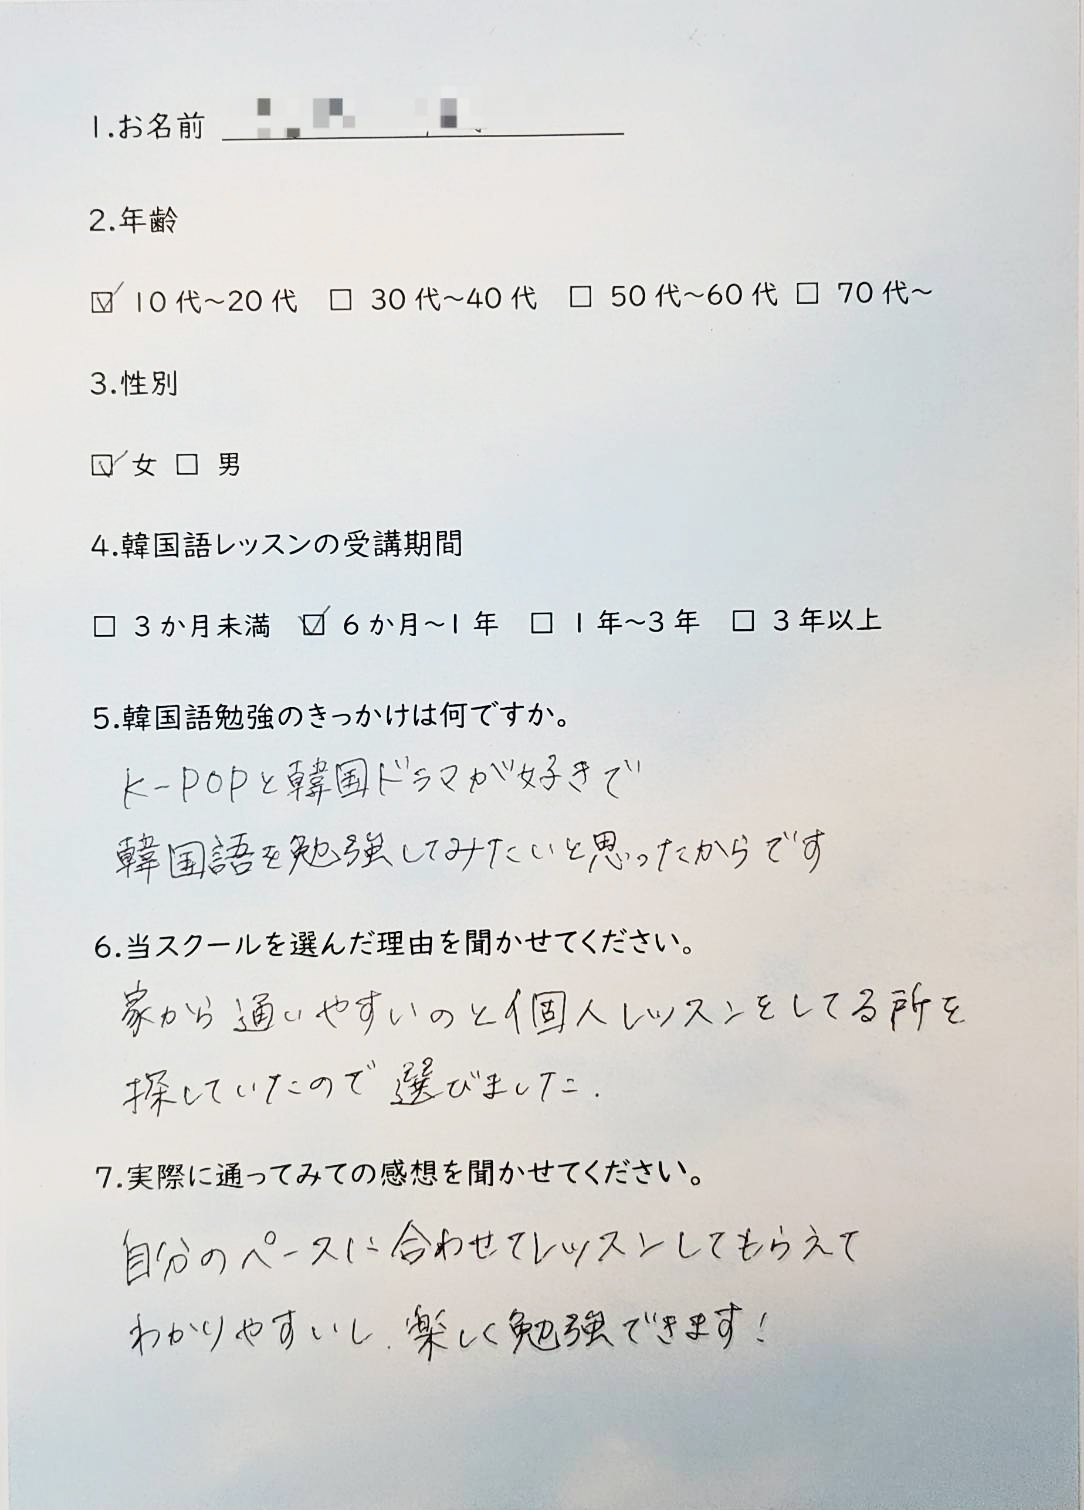 1.お名前
2.年齢
☑ 10代～20代 □ 30代～40代 □ 50代～60代 □ 70代～
3.性別
☑ 女 □ 男
4.韓国語レッスンの受講期間
□ 3か月未満 ☑ 6か月～1年 □ 1年～3年 □ 3年以上
5.韓国語勉強のきっかけは何ですか。
K-POPと韓国ドラマが好きで
韓国語を勉強してみたいと思ったからです
6.当スクールを選んだ理由を聞かせてください。
家から通いやすいのと個人レッスンをしてる所を
探していたので選びました.
7.実際に通ってみての感想を聞かせてください。
自分のペースに合わせてレッスンしてもらえて
わかりやすいし、楽しく勉強できます!